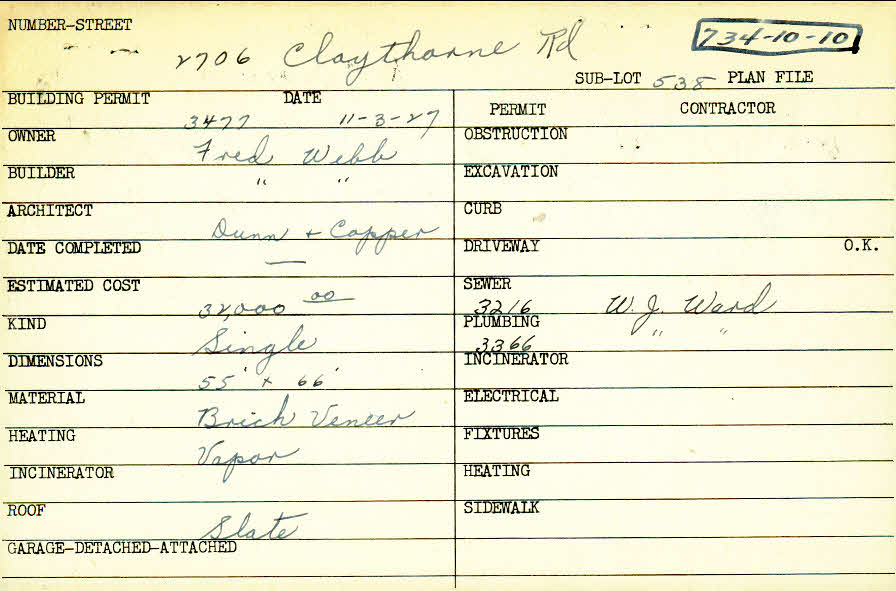 NUMBER-STREET
2706 Claythorne Rd
734-10-10
SUB-LOT 538 PLAN FILE
BUILDING PERMIT 3477 DATE 11-3-27
OWNER Fred Webb
BUILDER " "
ARCHITECT Dunn + Copper
DATE COMPLETED —
ESTIMATED COST 32,000 00
KIND Single
DIMENSIONS 55' x 66'
MATERIAL Brick Veneer
HEATING Vapor
INCINERATOR
ROOF Slate
GARAGE-DETACHED-ATTACHED
PERMIT CONTRACTOR
OBSTRUCTION
EXCAVATION
CURB
DRIVEWAY O.K.
SEWER 3216 W. J. Ward
PLUMBING 3366 " "
INCINERATOR
ELECTRICAL
FIXTURES
HEATING
SIDEWALK